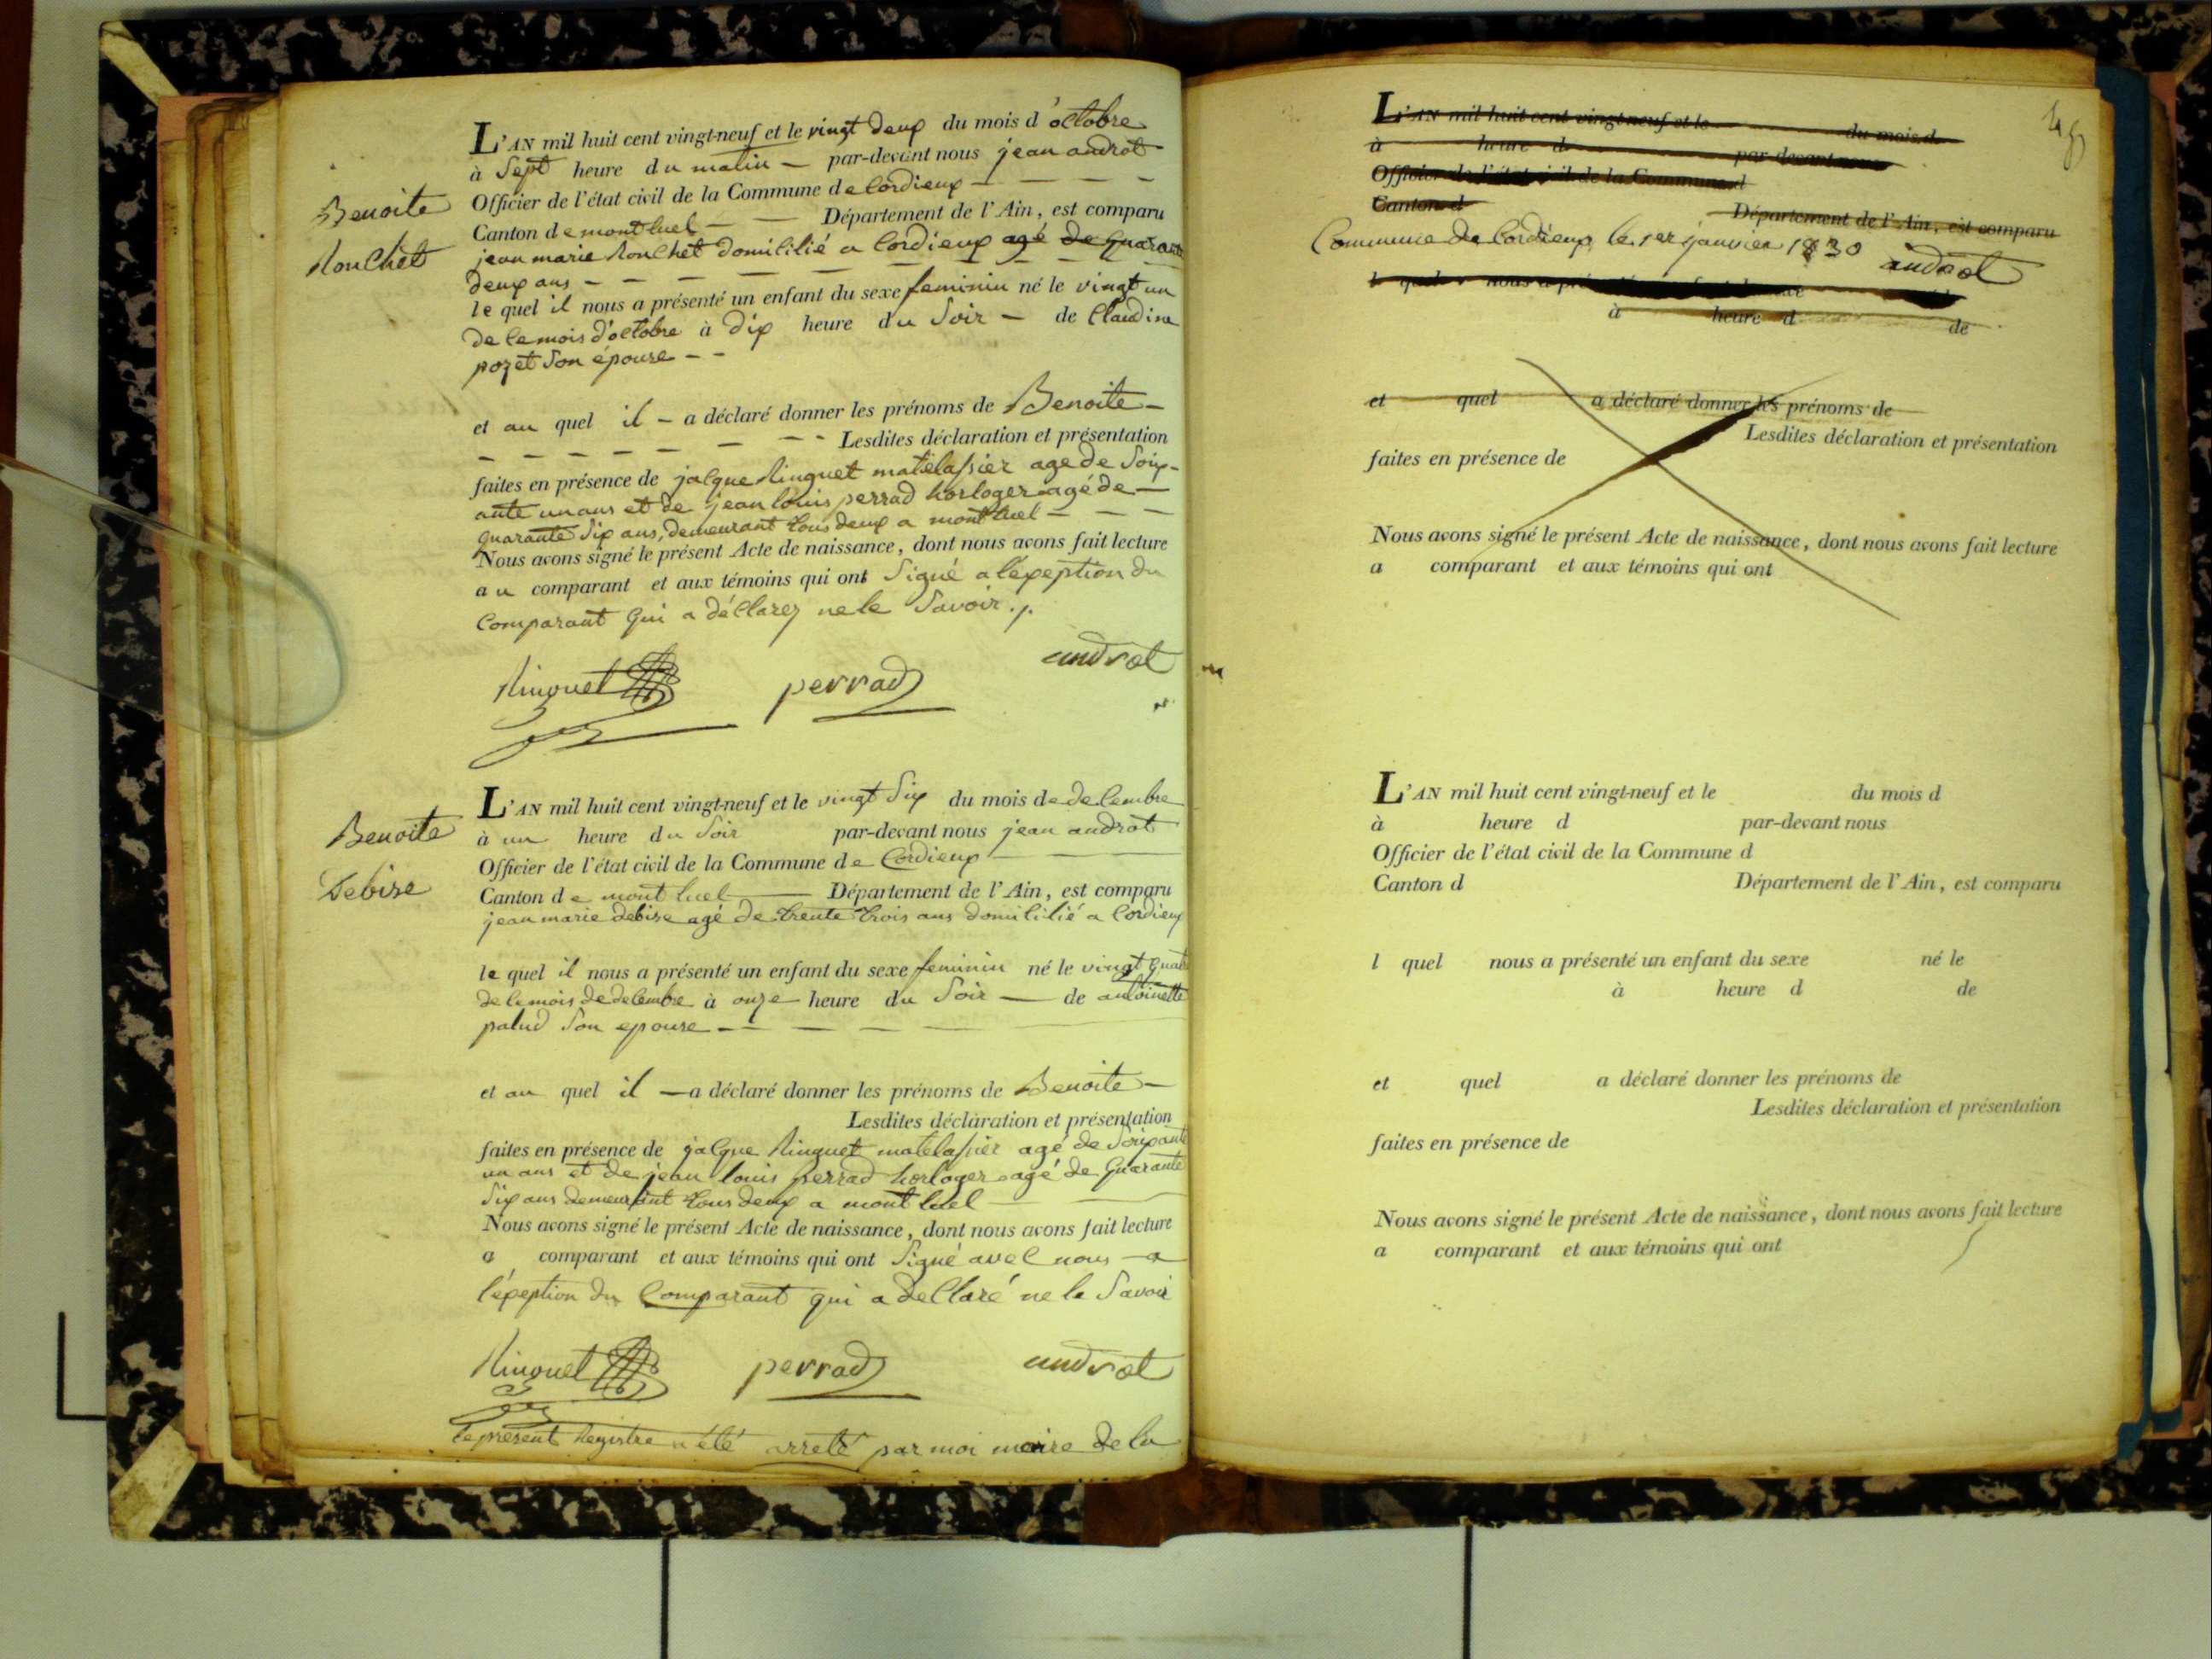 L'AN mil huit cent vingt-neuf et le vingt deux du mois d'octobre
à Sept heure du matin — par-devant nous jean androt
Officier de l'état civil de la Commune de Cordieux —
Canton de montluel — Département de l'Ain, est comparu
Benoite
jean marie Ronchet domicilié a Cordieux agé de quarante
Ronchet
deux ans —
le quel il nous a présenté un enfant du sexe feminin né le vingt un
de ce mois d'octobre à dix heure du Soir — de Claudine
pozet Son épouse - -
et au quel il — a déclaré donner les prénoms de Benoite —
— Lesdites déclaration et présentation
faites en présence de jacque Ringuet matelassier age de Soix-
ante un ans et de jean louis perrad horloger agé de —
quarante Six ans, demeurant tous deux a montluel —
Nous avons signé le présent Acte de naissance, dont nous avons fait lecture
au comparant et aux témoins qui ont Signé a l'éxeption du
Comparant qui a déclarez ne le Savoir ./.
Ringuet perrad androt
L'AN mil huit cent vingt-neuf et le vingt Six du mois de decembre
Benoite
à un heure du Soir par-devant nous jean androt
Officier de l'état civil de la Commune de Cordieux —
Debise
Canton de mont luel — Département de l'Ain, est comparu
jean marie debise agé de trente trois ans domicilié a Cordieux
le quel il nous a présenté un enfant du sexe feminin né le vingt quatre
de ce mois de decembre à onze heure du Soir — de antoinette
palud Son epouse —
et au quel il — a déclaré donner les prénoms de Benoite —
Lesdites déclaration et présentation
faites en présence de jacque Ringuet matelassier agé de Soixante
un ans et de jean louis perrad horloger agé de quarante
Six ans demeurant tous deux a mont luel
Nous avons signé le présent Acte de naissance, dont nous avons fait lecture
a comparant et aux témoins qui ont Signé avec nous — a
l'éxeption du Comparant qui a declaré ne le Savoir
Ringuet perrad androt
le présent Registre a été arreté par moi maire de la
L'AN mil huit cent vingt-neuf et le du mois d
à heure d par-devant nous
Officier de l'état civil de la Commune d
Canton d Département de l'Ain, est comparu
Commune de Cordieux, le 1er janvier 1830 androt
l quel nous a présenté
à heure d de
et quel a déclaré donner les prénoms de
Lesdites déclaration et présentation
faites en présence de
Nous avons signé le présent Acte de naissance, dont nous avons fait lecture
a comparant et aux témoins qui ont
L'AN mil huit cent vingt-neuf et le du mois d
à heure d par-devant nous
Officier de l'état civil de la Commune d
Canton d Département de l'Ain, est comparu
l quel nous a présenté un enfant du sexe né le
à heure d de
et quel a déclaré donner les prénoms de
Lesdites déclaration et présentation
faites en présence de
Nous avons signé le présent Acte de naissance, dont nous avons fait lecture
a comparant et aux témoins qui ont